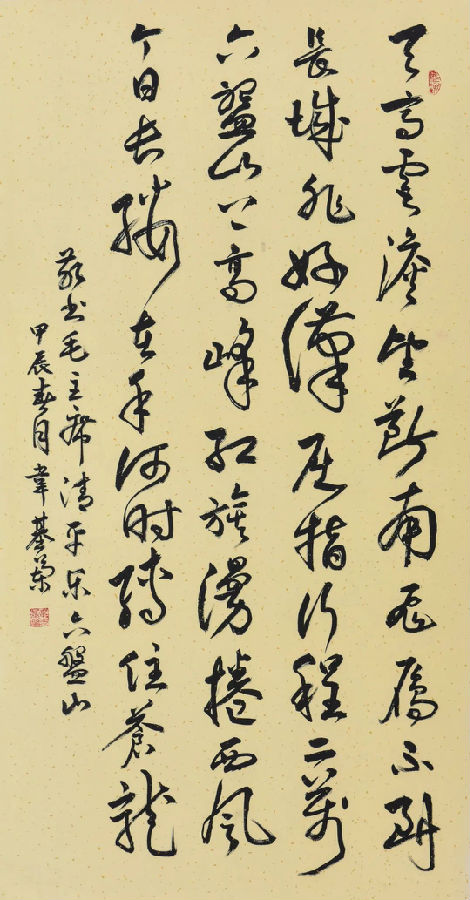 天高雲澹望斷南飛鴈不到
長城非好漢屈指行程二萬
六盤山上高峰紅旗漫捲西風
今日長纓在手何时縛住蒼龍
敬书毛主席清平乐六盤山
甲辰春月韋